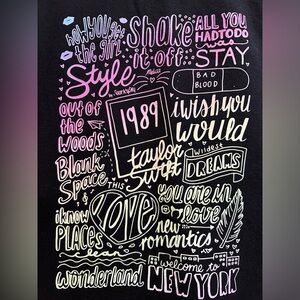 how you get
the girl
Shake
it off
ALL YOU
HAD TO DO
was
STAY
Style
BAD
BLOOD
out of
the
woods
1989
i wish you
would
Blank
Space
taylor
Swift
wildest
DREAMS
THIS
LOVE
you are in
love
i know
PLACES
new
romantics
clean
wonderland
welcome to
NEW YORK